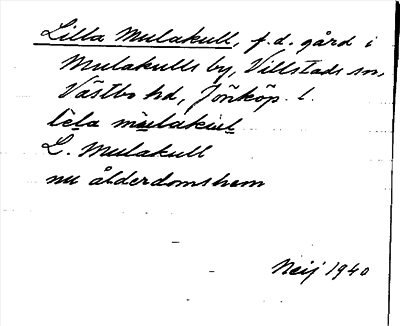 Lilla Mulakull, f.d. gård i
Mulakulls by, Villstads sn,
Västbo hd, Jönköp. l.
L. Mulakull
nu ålderdomshem
Neij 1940